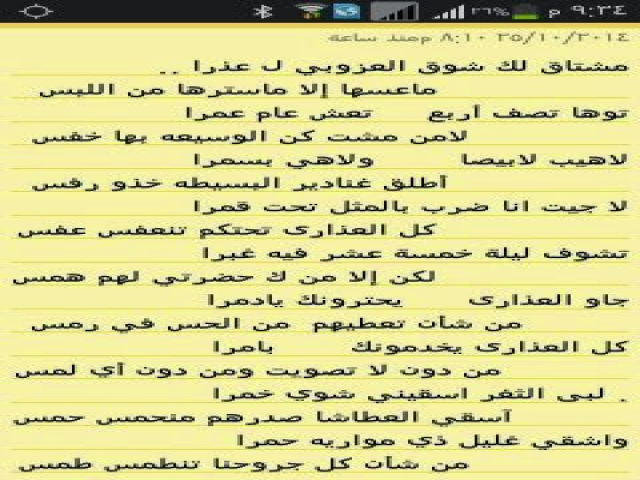 ٩:٣٤ م ٢٦%
٢٥/١٠/٢٠١٤ ٨:١٠ م منذ ساعة
مشتاق لك شوق العزوبي ل عذرا ..
ماعسها إلا ماسترها من اللبس
توها تصف أربع تعش عام عمرا
لامن مشت كن الوسيعه بها خفس
لاهيب لابيصا ولاهي بسمرا
أطلق غنادير البسيطه خذو رفس
لا جيت انا ضرب بالمثل تحت قمرا
كل العذارى تحتكم تنعفس عفس
تشوف ليلة خمسة عشر فيه غبرا
لكن إلا من ك حضرتي لهم همس
جاو العذارى يحترونك يادمرا
من شأن تعطيهم من الحس في رمس
كل العذارى يخدمونك بامرا
من دون لا تصويت ومن دون آي لمس
. لبى الثغر اسقيني شوي خمرا
آسقي العطاشا صدرهم منحمس حمس
واشقي غليل ذي مواريه حمرا
من شأن كل جروحنا تنطمس طمس